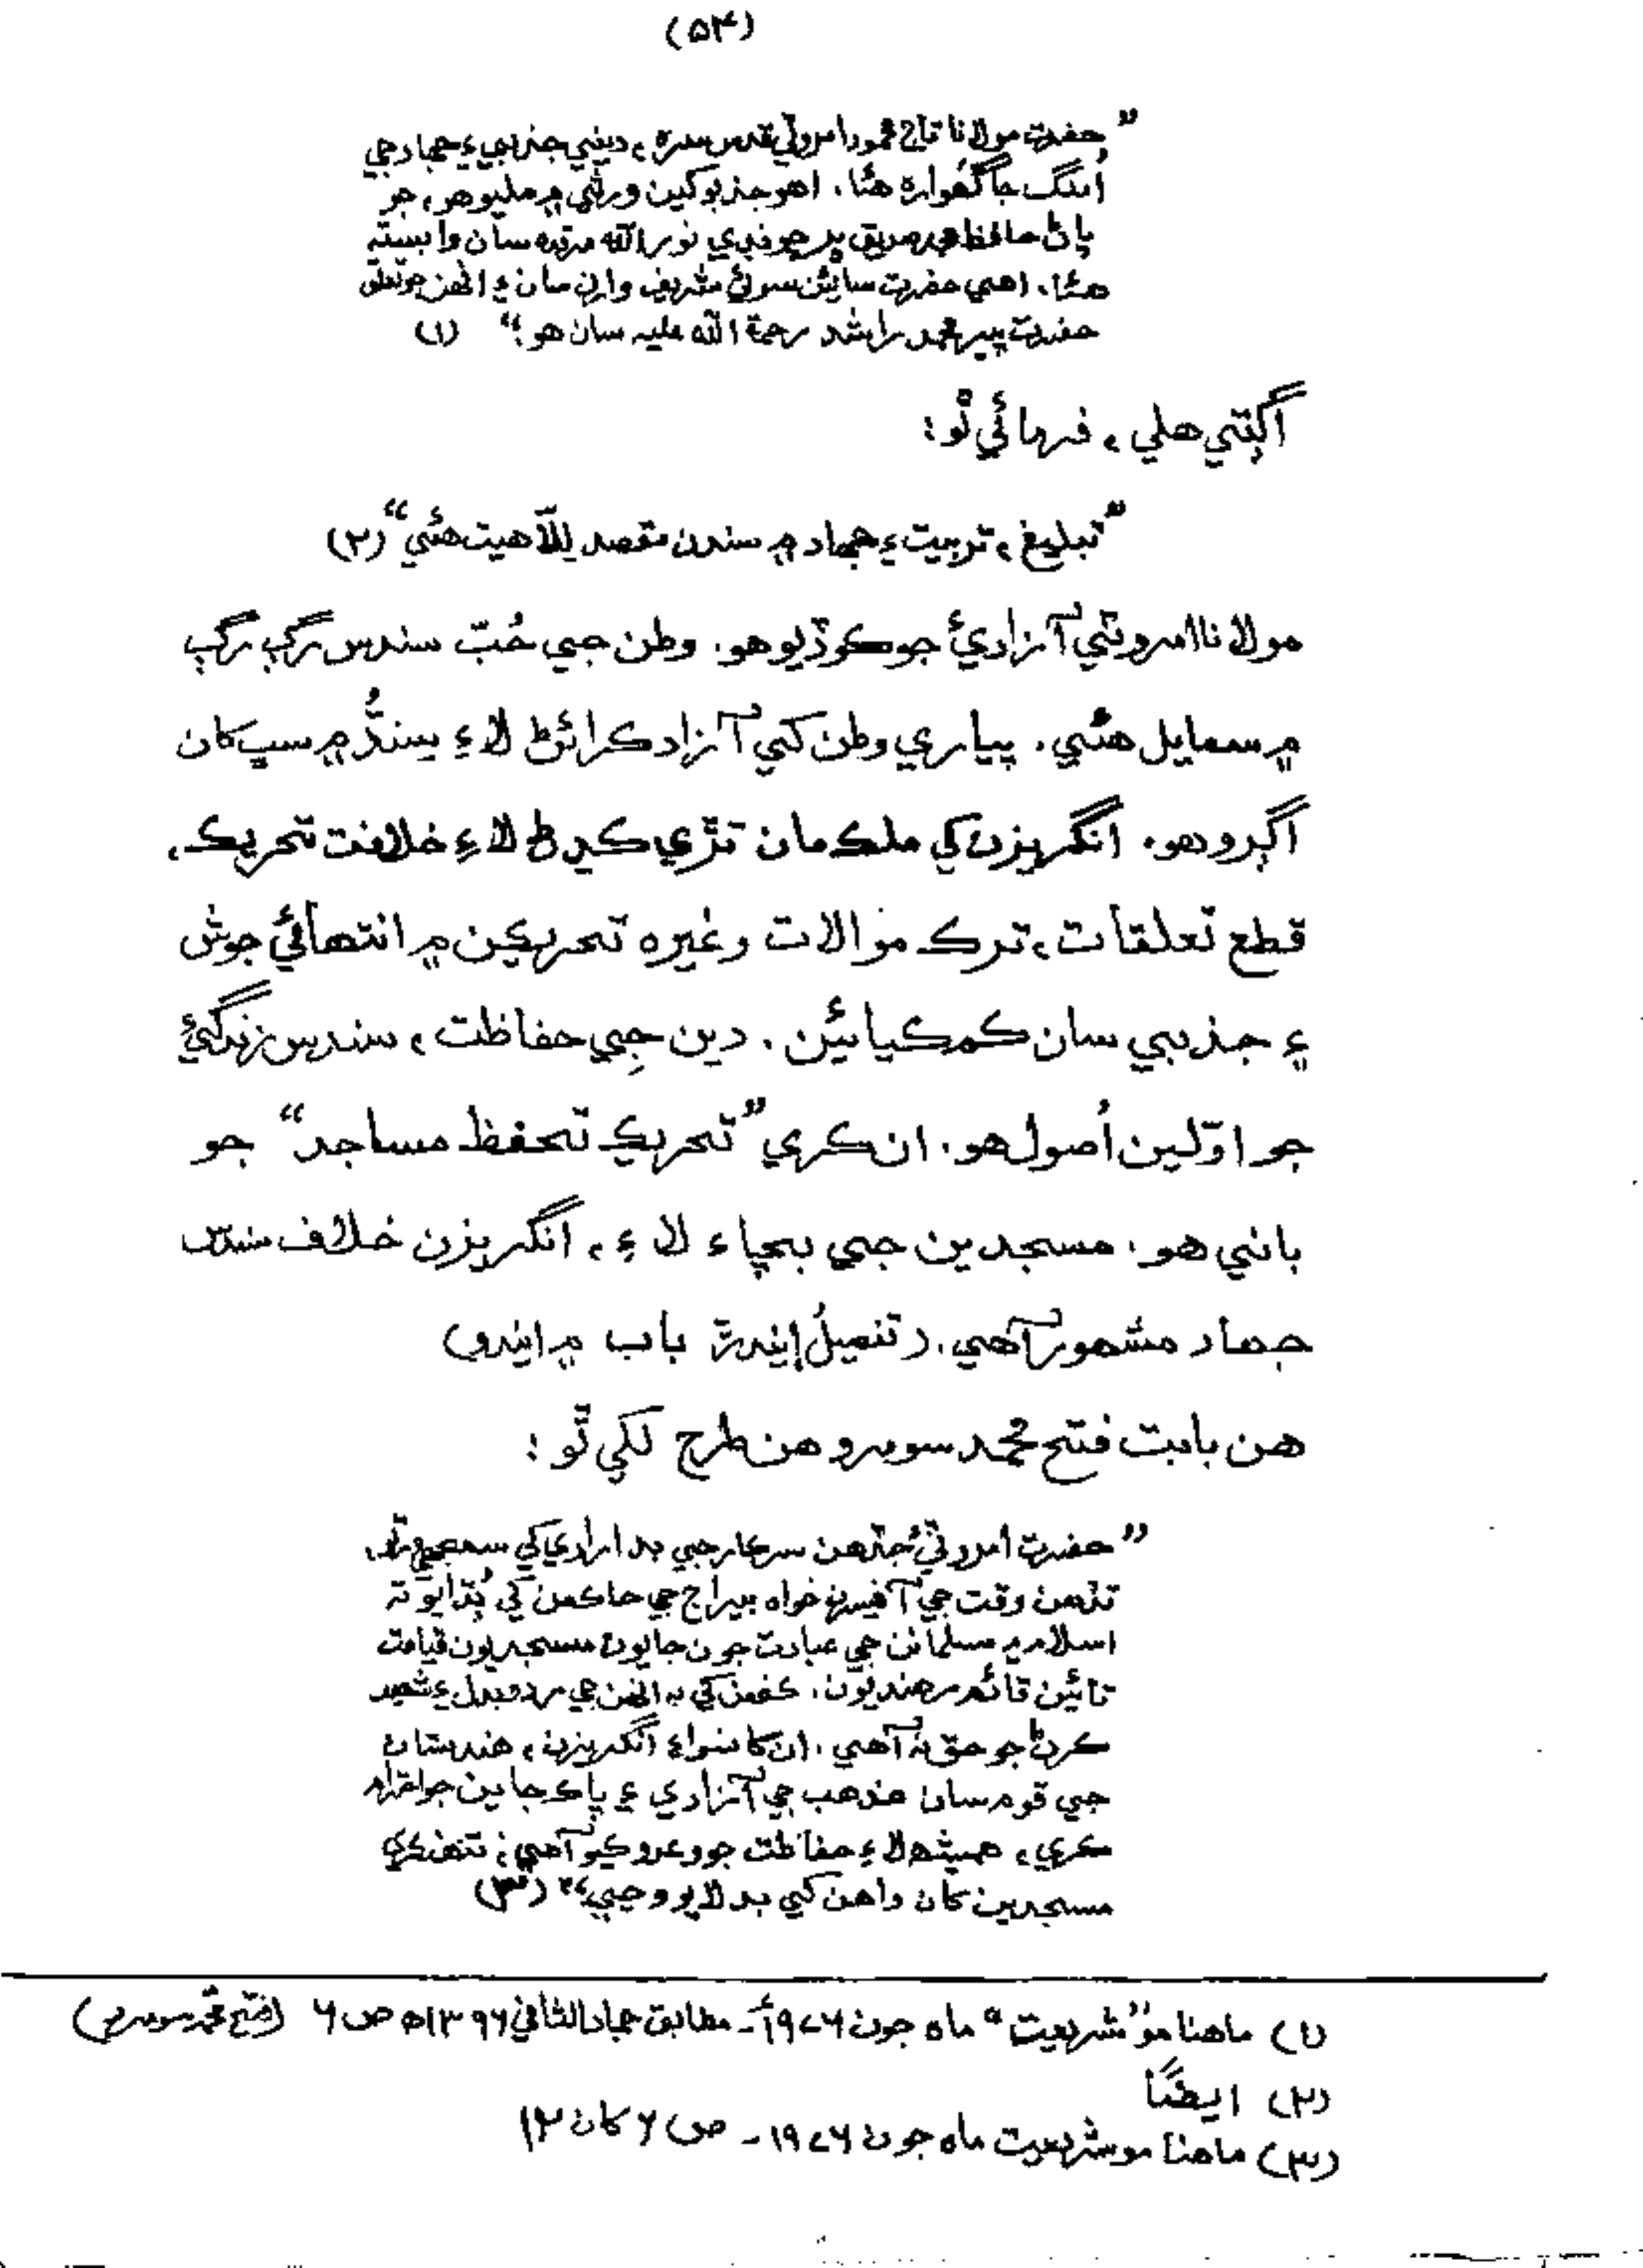 (۵۴)
”حضرت مولانا تاج محمود امروٽي قدس سره، ديني جذبي ۽ جهاد جي
اُمنگ جا گهُوارہ هئا. اهو جذبو کين ورثي ۾ مليو هو، جو
پاڻ حافظ محمد صديق ڀرچونڊي نور الله مرقده سان وابسته
هئا. اهي حضرت سائين سوئي شريف وارن سان ۽ انهن جو تعلق
حضرت پير محمد راشد رحمة الله عليہ سان هو.“ (۱)
اڳتي هلي، فرمائي ٿو:
”تبليغ، تربيت ۽ جهاد ۾ سندن مقصد للّٰاهيت هئي“ (۲)
مولانا امروٽي آزاديءَ جو ڪوڏيو هو. وطن جي حُبّ سندس رڳ رڳ
۾ سمايل هئي. پياري وطن کي آزاد ڪرائڻ لاءِ سنڌُ ۾ سڀ کان
اڳرو هو. انگريزن کي ملڪ مان تڙي ڪڍڻ لاءِ خلافت تحريڪ،
قطع تعلقات، ترڪ موالات وغيره تحريڪن ۾ انتهائي جوش
۽ جذبي سان ڪم ڪيائين. دين جِي حفاظت، سندس زندگيءَ
جو اوّلين اُصول هو. ان ڪري ”تحريڪ تحفظ مساجد“ جو
باني هو. مسجدين جي بچاءَ لاءِ، انگريزن خلاف سندس
جهاد مشهور آهي. (تفصيلُ ايندڙ باب ۾ ايندو)
هن بابت فتح محمد سومرو هن طرح لکي ٿو:
”حضرت امروٽيءَ جڏهن سرڪار جي بد ارادي کي سمجهي ورتو،
تڏهن وقت جي آفيسرن خواه بيراج جي حاڪمن کي ٻُڌايو تہ
اسلام ۾ مسلمانن جي عبادت جون جايون مسجديون قيامت
تائين قائم رهنديون. ڪنهن کي بہ انهن جي ردوبدل ۽ شهيد
ڪرڻ جو حق نہ آهي. ان کانسواءِ انگريزن، هندستان
جي قوم سان مذهب جي آزادي ۽ پاڪ جاين جو احترام
ڪري، هميشه لاءِ حفاظت جو وعدو ڪيو آهي؛ تنهنڪري
مسجدين کان واهن کي بدلايو وڃي،“ (۳)
(۱) ماهنامو ”شريعت“ ماہ جون ۱۹۷۶ءَ۔ مطابق جمادالثاني ۱۳۹۶ھ ص ۶ (فتح محمد سومرو)
(۲) ايضًا
(۳) ماهنامو شريعت ماہ جون ۱۹۷۶۔ ص ۶ کان ۱۲